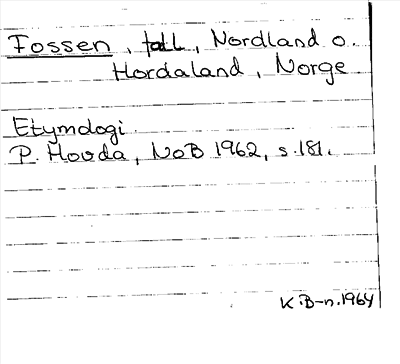 Fossen, fall, Nordland o.
Hordaland, Norge
Etymologi.
P. Hovda, NoB 1962, s.181.
K.B-n.1964